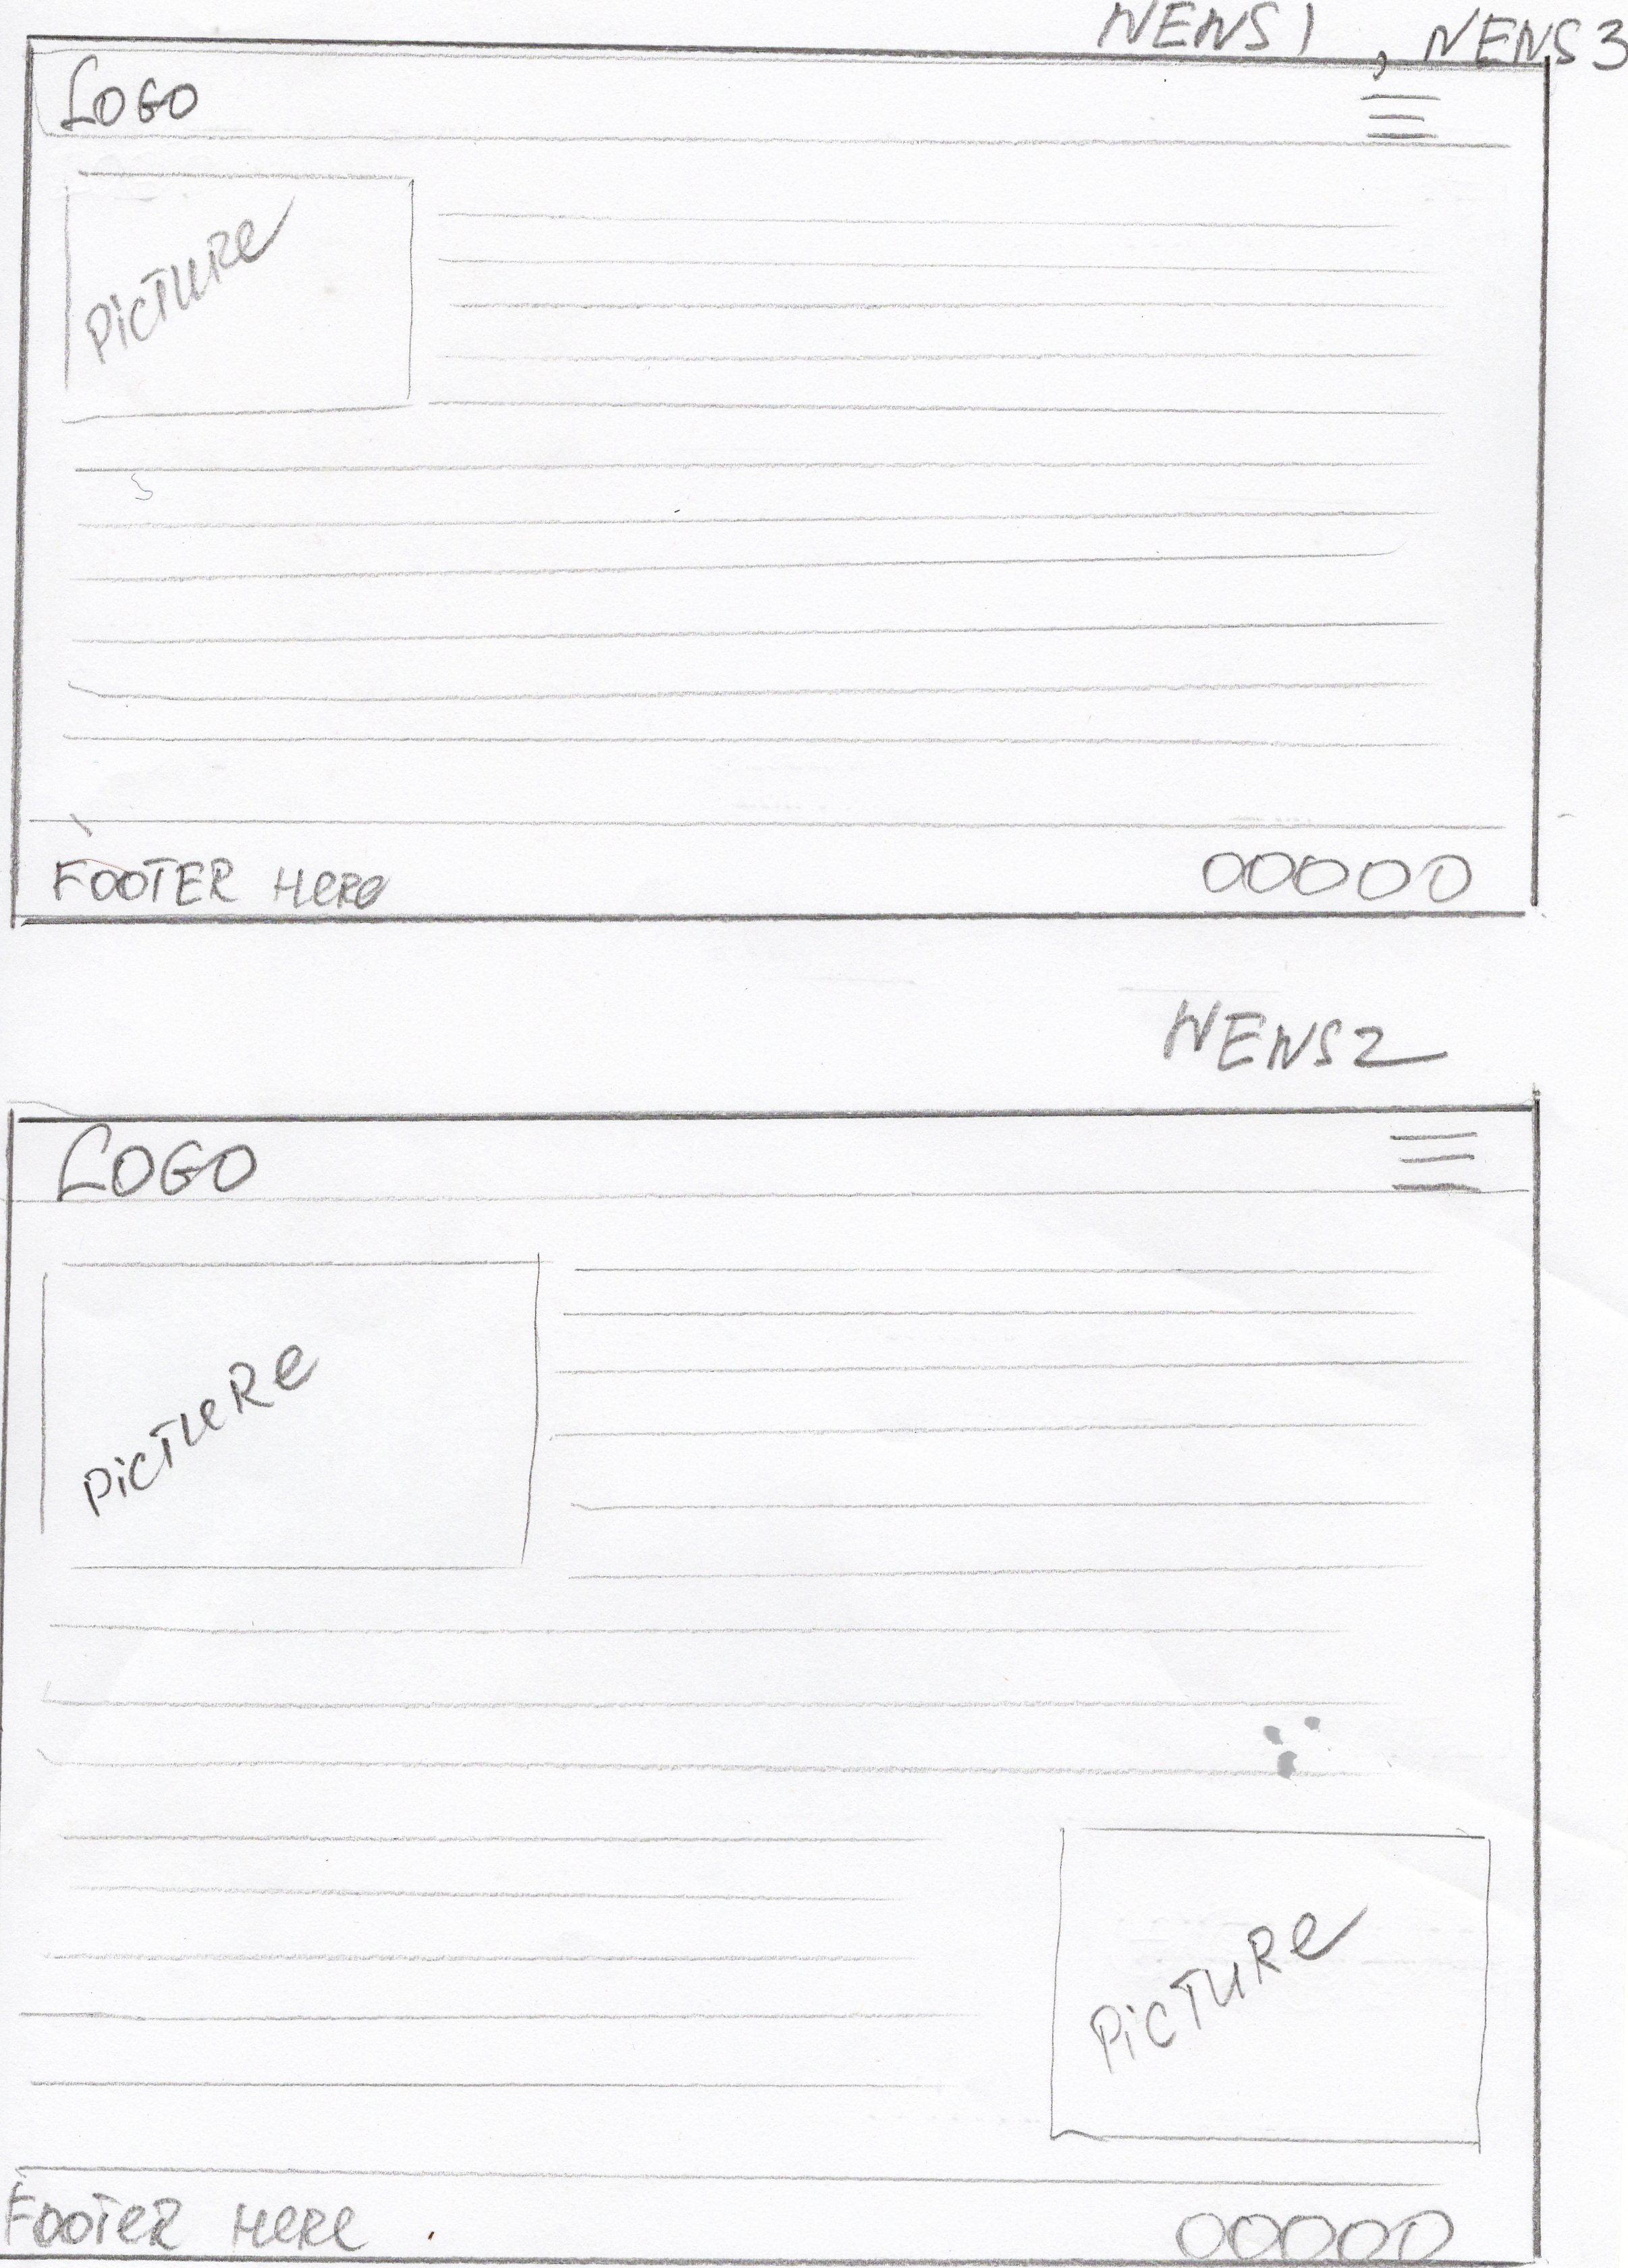 NEWS1, NEWS3
LOGO
PICTURe
FOOTER HeRe
NEWS2
LOGO
PiCTuRe
PiCTuRe
FOOTeR HeRe